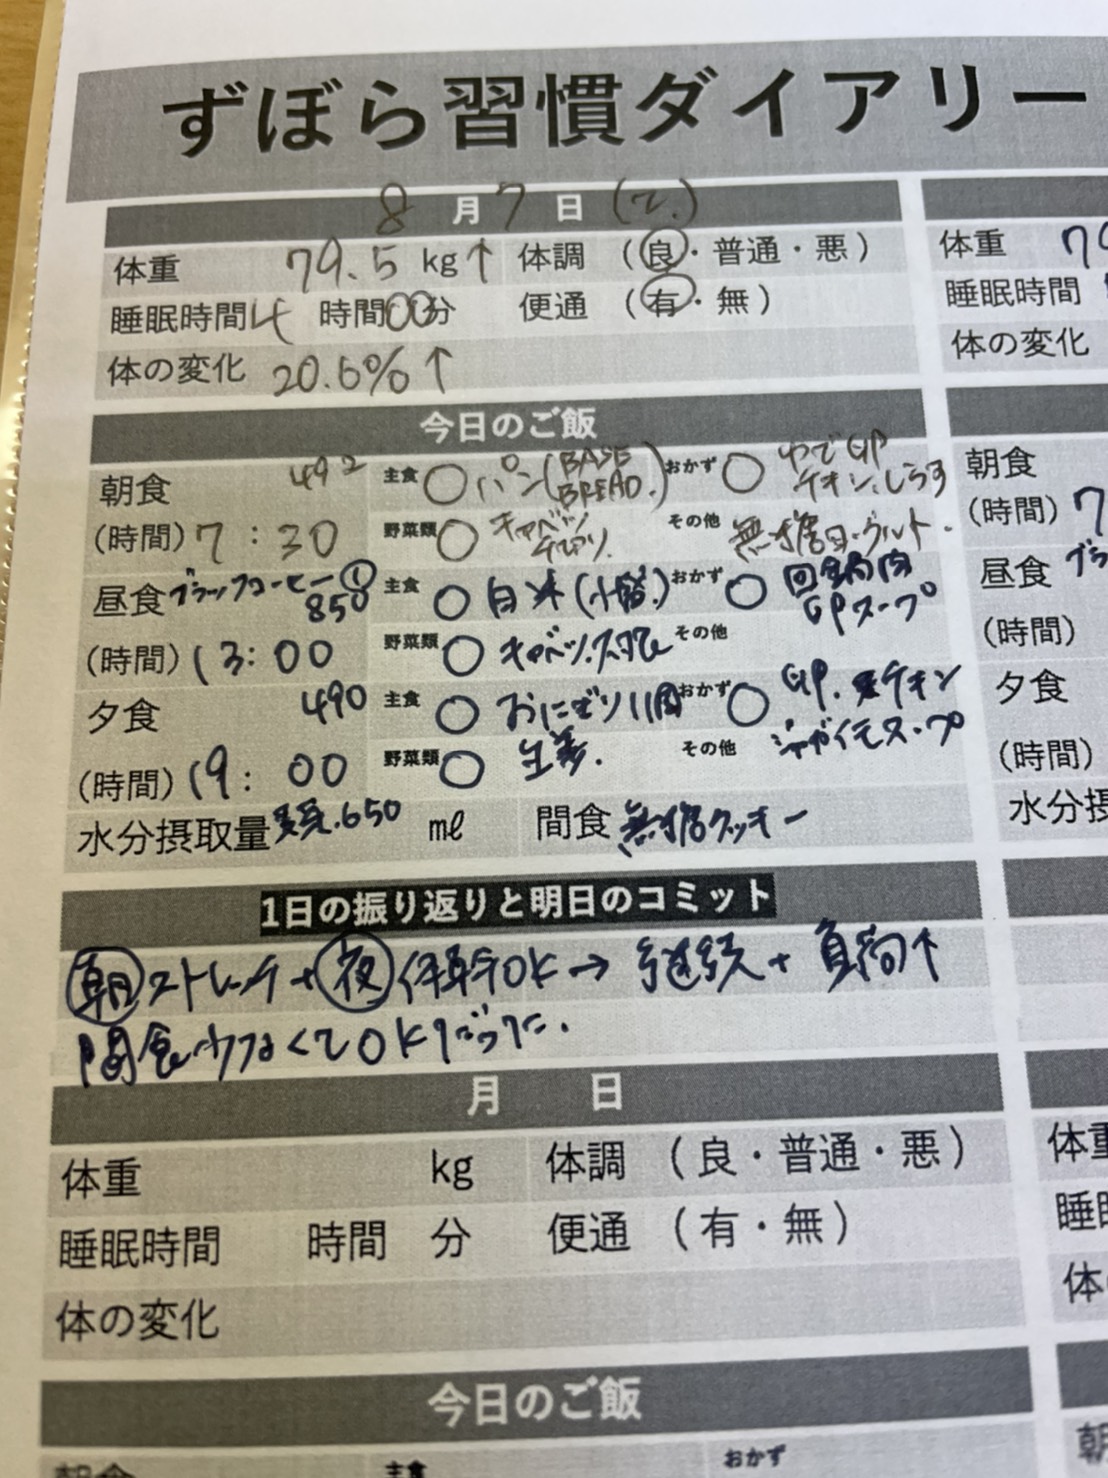 ずぼら習慣ダイアリー
8 月 7 日
体重 79.5 kg↑ 体調 (良・普通・悪)
睡眠時間 4 時間 00分 便通 (有・無)
体の変化 20.6%↑
今日のご飯
朝食 492 主食 ○ パン(BASE BREAD.) おかず ○ ゆで チキン、しらす
(時間) 7:30 野菜類 ○ キャベツ 千切り. その他 無糖ヨーグルト.
昼食 ブラックコーヒー① 850 主食 ○ 白米(小盛.) おかず ○ 回鍋肉 スープ
(時間) 13:00 野菜類 ○ キャベツ. その他
夕食 490 主食 ○ おにぎり1個 おかず ○ チキン ジャガイモスープ
(時間) 19:00 野菜類 ○ 生姜. その他
水分摂取量 650 ㎖ 間食 無糖クッキー
1日の振り返りと明日のコミット
朝ストレッチ+夜 OK→継続+負荷↑
間食少なくてOKだった.
月 日
体重 kg 体調 (良・普通・悪)
睡眠時間 時間 分 便通 (有・無)
体の変化
今日のご飯
朝食 主食 おかず
体重 79
睡眠時間
体の変化
朝食
(時間) 7
昼食 ブラ
(時間)
夕食
(時間)
水分摂
体重
睡
体の
朝